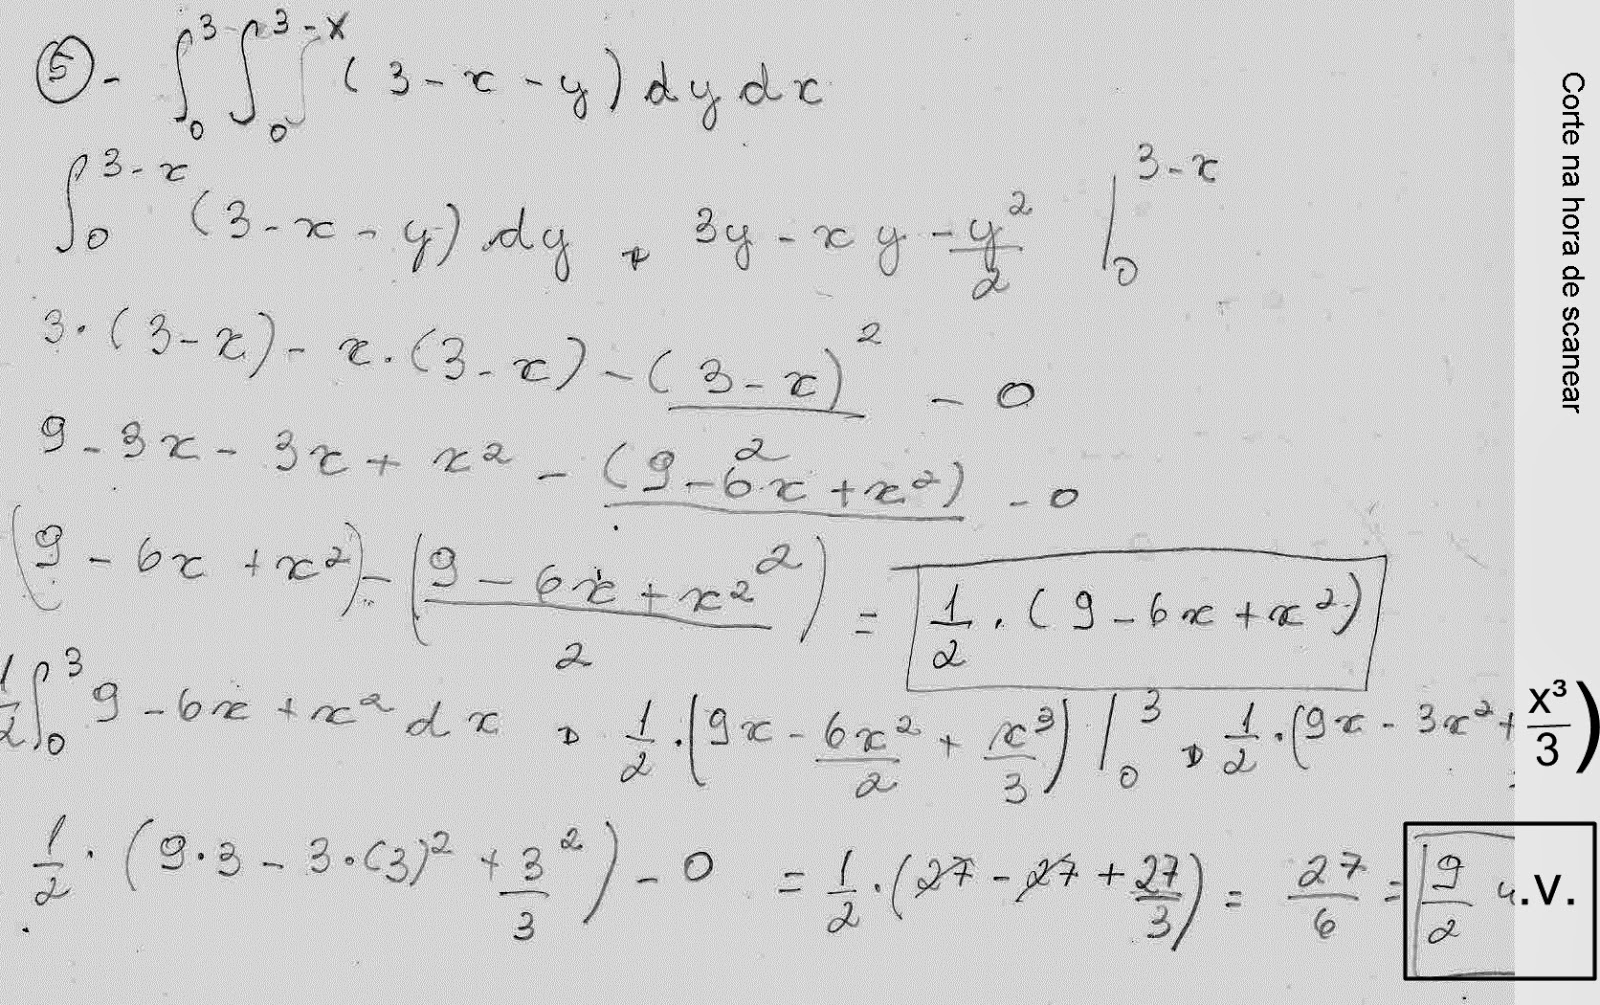 5 - ∫₀³ ∫₀^(3-x) (3 - x - y) dy dx
∫₀^(3-x) (3 - x - y) dy → 3y - xy - y²/2 |₀^(3-x)
3·(3-x) - x·(3-x) - (3-x)²/2 - 0
9 - 3x - 3x + x² - (9 - 6x + x²)/2 - 0
(9 - 6x + x²) - (9 - 6x + x²/2) = 1/2 · (9 - 6x + x²)
1/2 ∫₀³ 9 - 6x + x² dx → 1/2 · (9x - 6x²/2 + x³/3) |₀³ → 1/2 · (9x - 3x² + x³/3)
1/2 · (9·3 - 3·(3)² + 3²/3) - 0 = 1/2 · (27 - 27 + 27/3) = 27/6 = 9/2 u.v.
Corte na hora de scanear